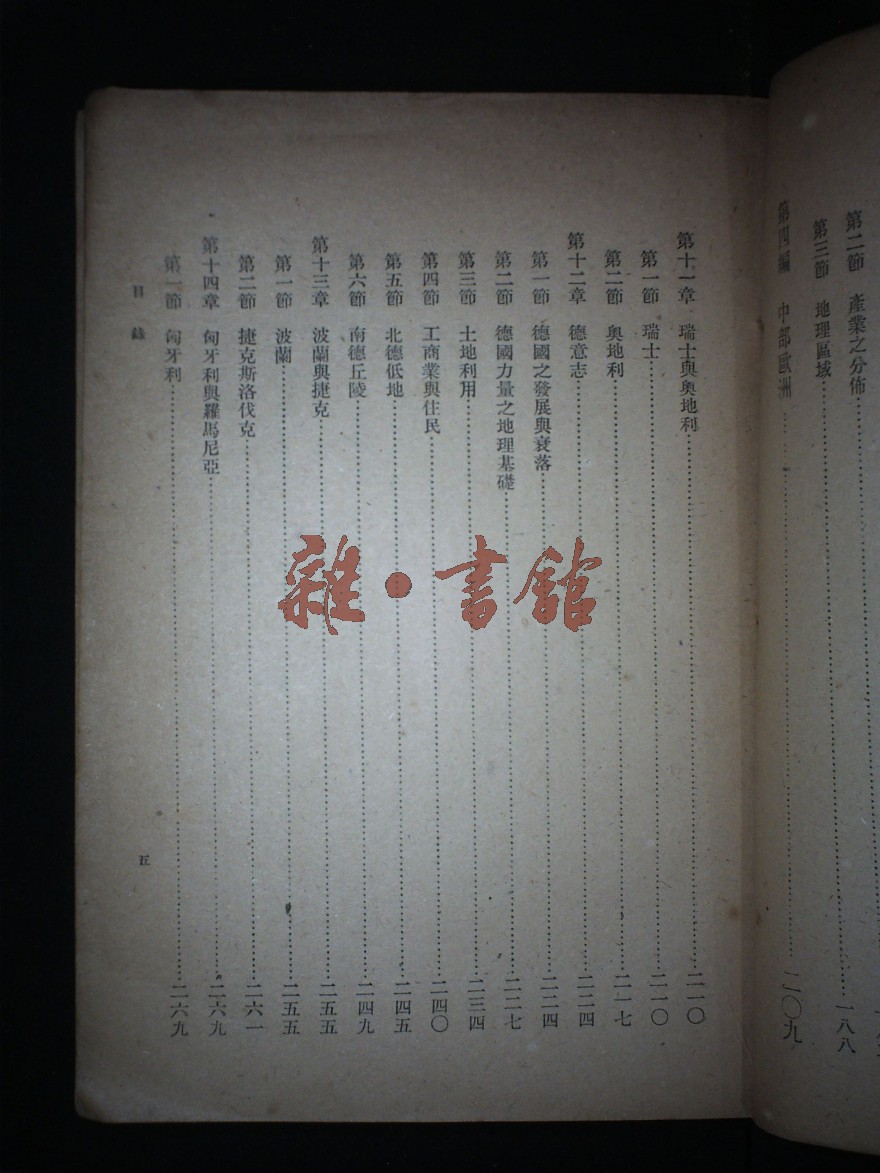 第二節　產業之分佈
第三節　地理區域……一八八
第四編　中部歐洲……二〇九
第十一章　瑞士與奧地利……二一〇
第一節　瑞士……二一〇
第二節　奧地利……二一七
第十二章　德意志……二二四
第一節　德國之發展與衰落……二二四
第二節　德國力量之地理基礎……二二七
第三節　土地利用……二三四
第四節　工商業與住民……二四〇
第五節　北德低地……二四五
第六節　南德丘陵……二四九
第十三章　波蘭與捷克……二五五
第一節　波蘭……二五五
第二節　捷克斯洛伐克……二六一
第十四章　匈牙利與羅馬尼亞……二六九
第一節　匈牙利……二六九
目錄
五
雜·書館